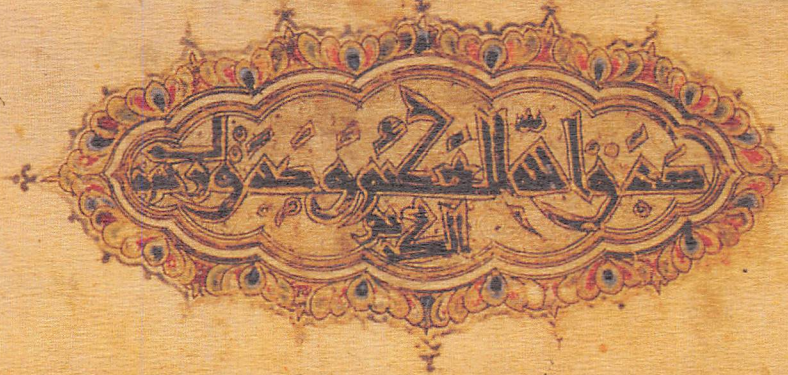 صدق الله العظيم وصدق رسوله
الكريم